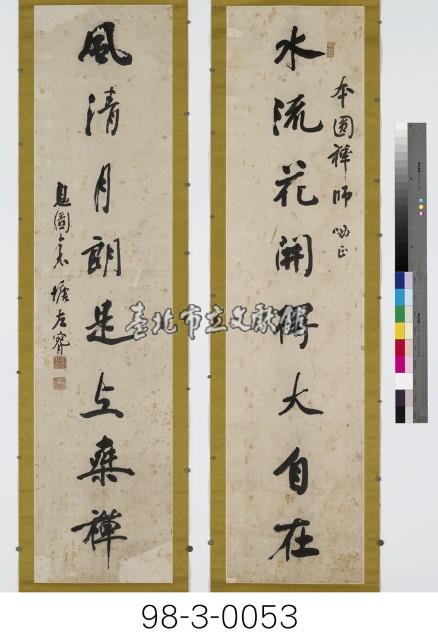 水流花開得大自在
本圓禪師 正
風清月朗是上乘禪
臺北市立文獻館
98-3-0053